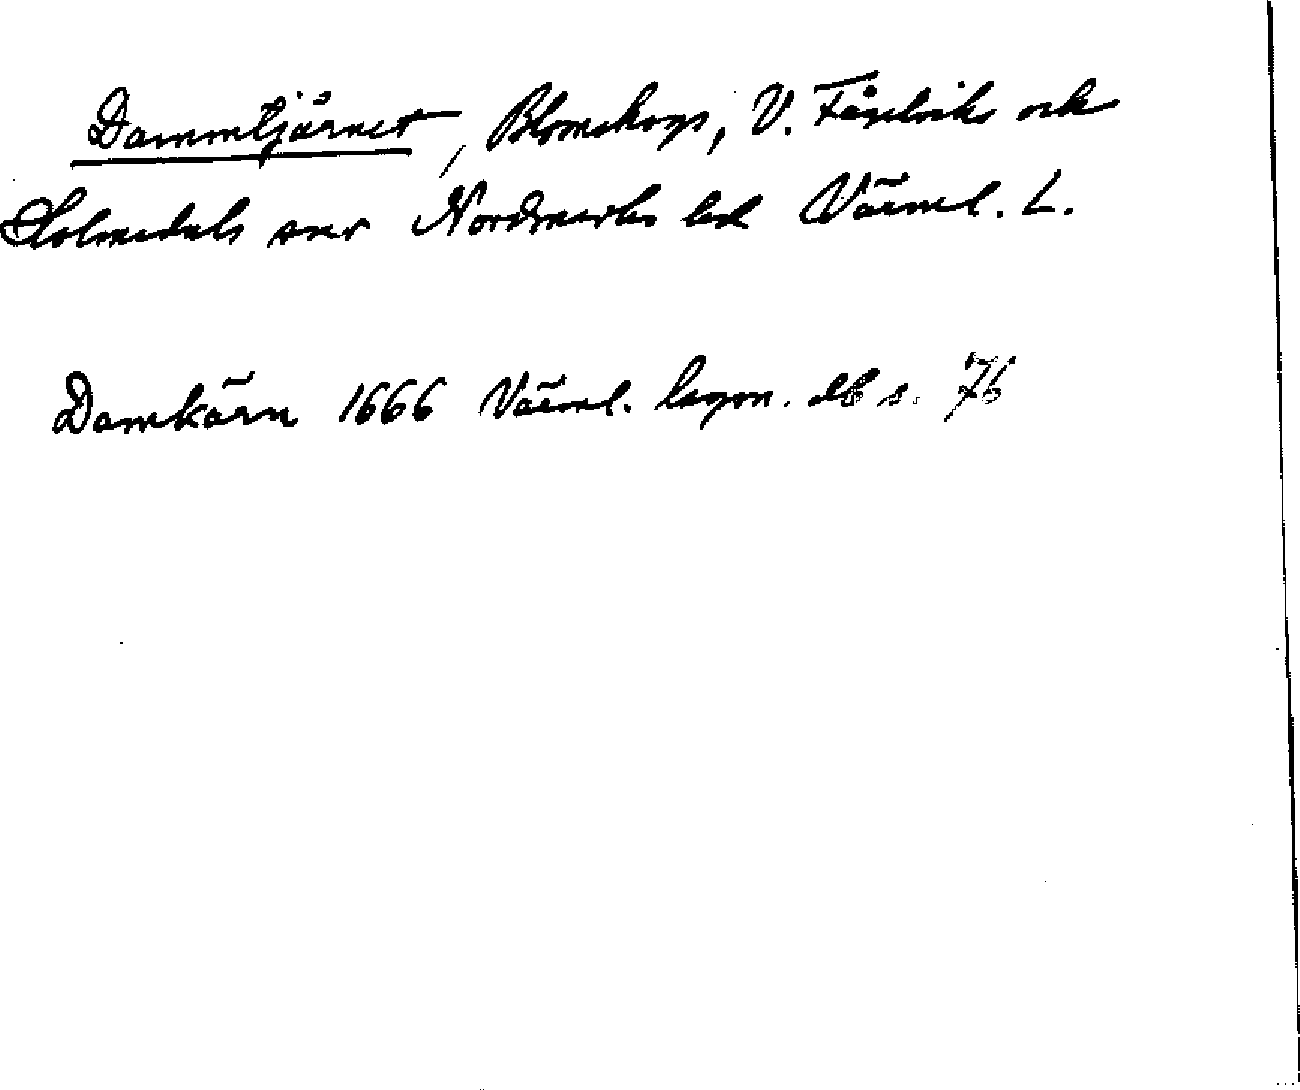 Dammtjärnet, Blomskogs, V. Fågelviks och
Holmedals snr Nordmarks hd Värml. L.
Damkärn 1666 Värml. lagm. db s. 76